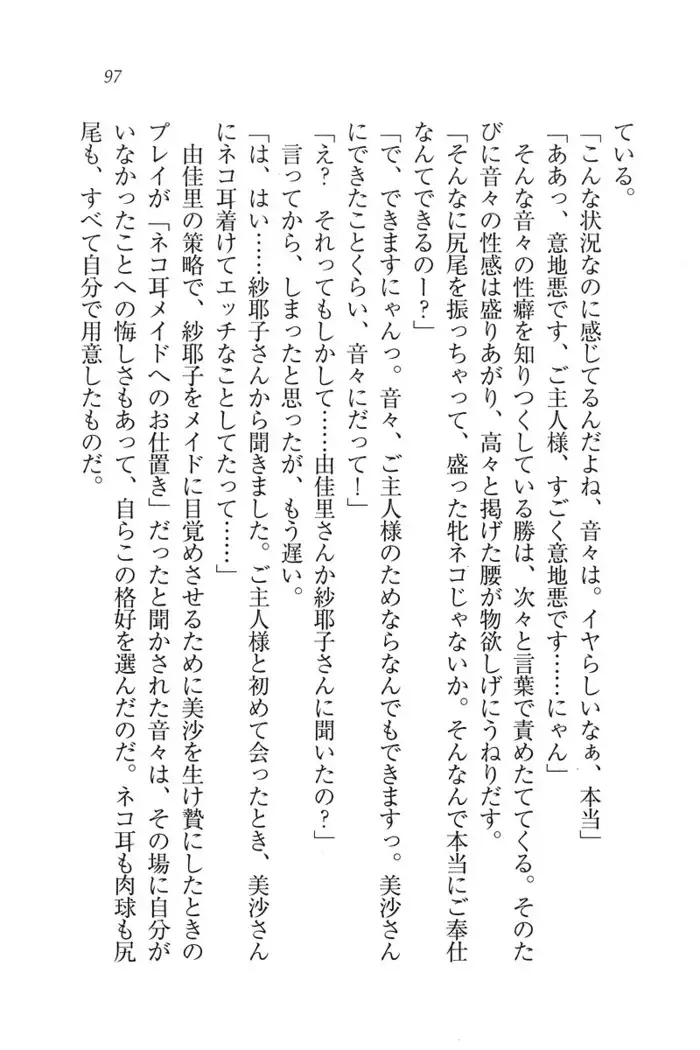 97
ている。
「こんな状況なのに感じてるんだよね、音々は。イヤらしいなぁ、本当」
「ああっ、意地悪です、ご主人様、すごく意地悪です……にゃん」
そんな音々の性癖を知りつくしている勝は、次々と言葉で責めたててくる。そのた
びに音々の性感は盛りあがり、高々と掲げた腰が物欲しげにうねりだす。
「そんなに尻尾を振っちゃって、盛った牝ネコじゃないか。そんなんで本当にご奉仕
なんてできるのー？」
「で、できますにゃんっ。音々、ご主人様のためならなんでもできますっ。美沙さん
にできたことくらい、音々にだって！」
「え？　それってもしかして……由佳里さんか紗耶子さんに聞いたの？」
言ってから、しまったと思ったが、もう遅い。
「は、はい……紗耶子さんから聞きました。ご主人様と初めて会ったとき、美沙さん
にネコ耳着けてエッチなことしてたって……」
由佳里の策略で、紗耶子をメイドに目覚めさせるために美沙を生け贄にしたときの
プレイが「ネコ耳メイドへのお仕置き」だったと聞かされた音々は、その場に自分が
いなかったことへの悔しさもあって、自らこの格好を選んだのだ。ネコ耳も肉球も尻
尾も、すべて自分で用意したものだ。